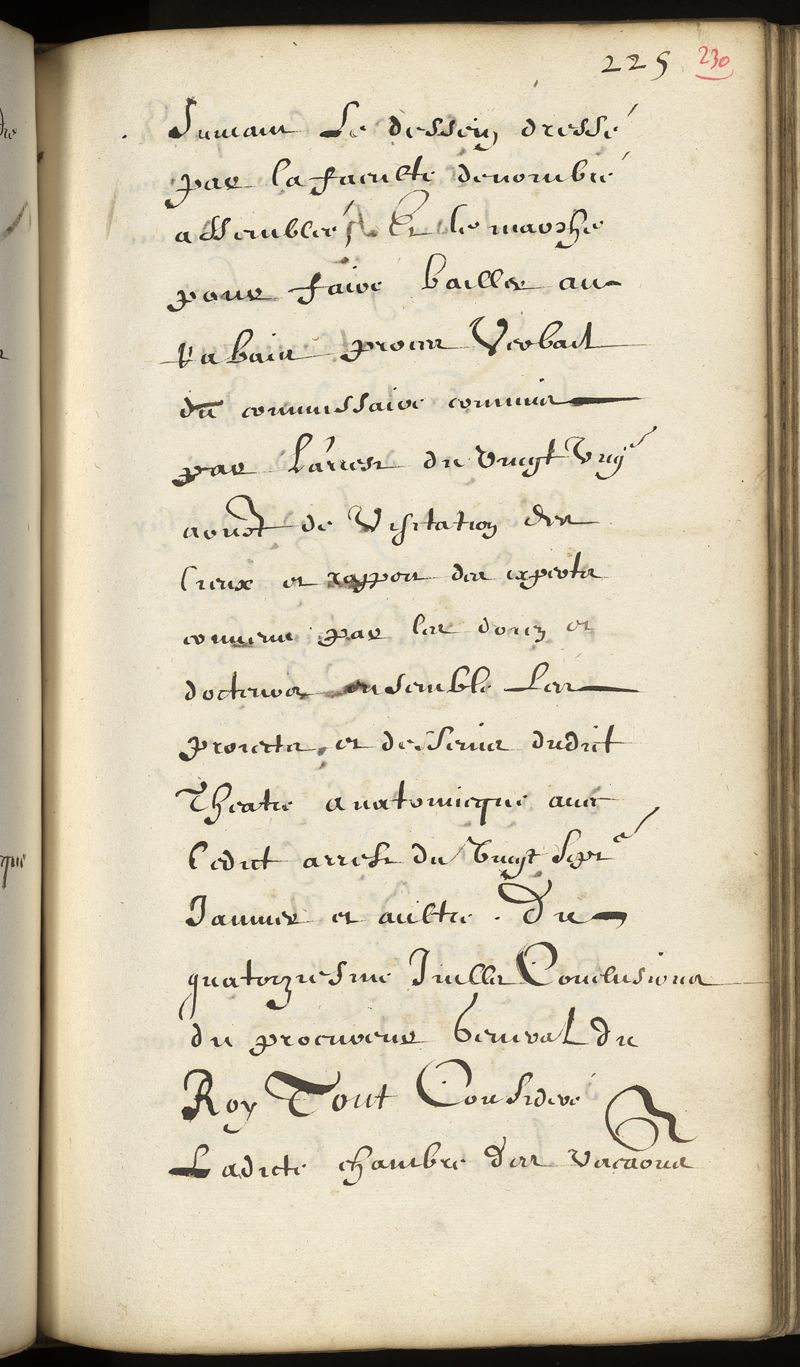 225 230
Suivant Le dessein dressé
par la faculté denombré
assemblee, Et le marche
pour faire bailler au
Rabais proces Verbal
du commissaire commis
par L'arrest du vingt
aoust de Visitation des
lieux et rapport des expertz
convenus par les doien et
docteurs ensemble Les
proiects et desseins dudict
Theatre anatomicque avec
ledict arrest du Vingt Sept.e
Januier et aultre. Du
quatorziesme Juillet Conclusions
du procureur General du
Roy Tout Consideré
Ladicte chambre des vacaons